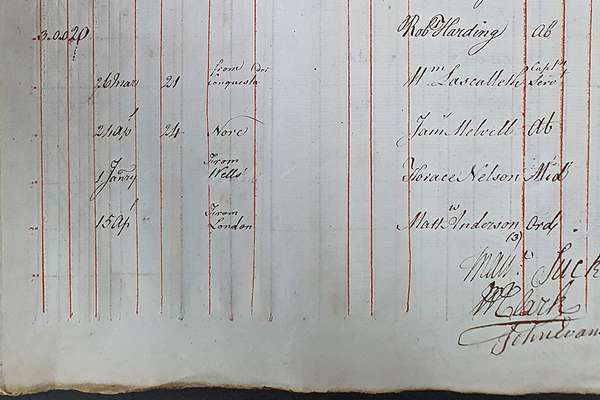 3.0.0 20 Robt Harding Ab
26 Mar 21 from Conquesta Wm Lascalleth Captn Servt
24 Ap 24 Nore Jam Melvell Ab
1 Janry From Wells Horace Nelson Mid
15 Ap From London Mattw Anderson Ord
(3)
Suck
Clark
John Evans